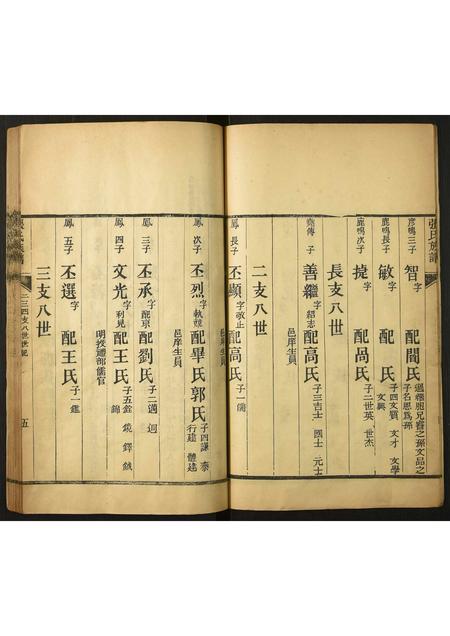 張氏族譜
彦鳴三子 智 字 配閻氏 過繼胞兄睿之孫文品之
子名恩爲孫
鹿鳴長子 敏 字 配 氏 子四文質 文才 文學
文興
鹿鳴次子 捷 字 配咼氏 子二世英 世杰
長支八世
堯傳 子 善繼 字紹志 配高氏 子三吉士 國士 元士
邑庠生員
二支八世
鳳 長子 丕顯 字敬止 配高氏 子一儒
邑庠生員
鳳 次子 丕烈 字執競 配畢氏郭氏 子四謙 泰
行建 體建
邑庠生員
鳳 三子 丕承 字配京 配劉氏 子二邁 迥
鳳 四子 文光 字利見 配王氏 子五銓 鏡 鐸 鉞
錦
明授禮部儒官
鳳 五子 丕選 字 配王氏 子一鑑
三支八世
二三四支八世世紀
五